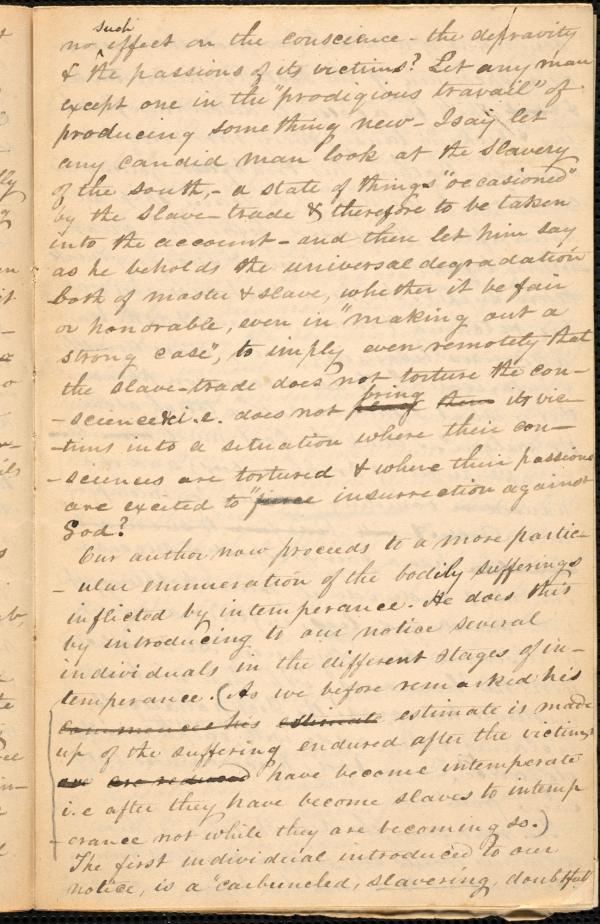 such
no ^ effect on the conscience - the depravity
& the passions of its victims? Let any man
except one in the "prodigious travail" of
producing something new - I say let
any candid man look at the slavery
of the south, - a state of things "occasioned"
by the slave-trade & therefore to be taken
into the account - and then let him say
as he beholds the universal degradation
both of master & slave, whether it be fair
or honorable, even in "making out a
strong case", to imply even remotely that
the slave-trade does not torture the con-
-science & i.e. does not bring them its vic-
-tims into a situation where their con-
-sciences are tortured & where their passions
are excited to "fierce insurrection against
God?
Our author now proceeds to a more partic-
-ular enumeration of the bodily sufferings
inflicted by intemperance. He does this
by introducing to our notice several
individuals in the different stages of in-
temperance. (As we before remarked his
commences his estimate estimate is made
up of the suffering endured after the victims
are are reduced have become intemperate
i.e after they have become slaves to intemp
-erance not while they are becoming so.)
The first individual introduced to our
notice, is a "carbuncled, slavering, doubtful